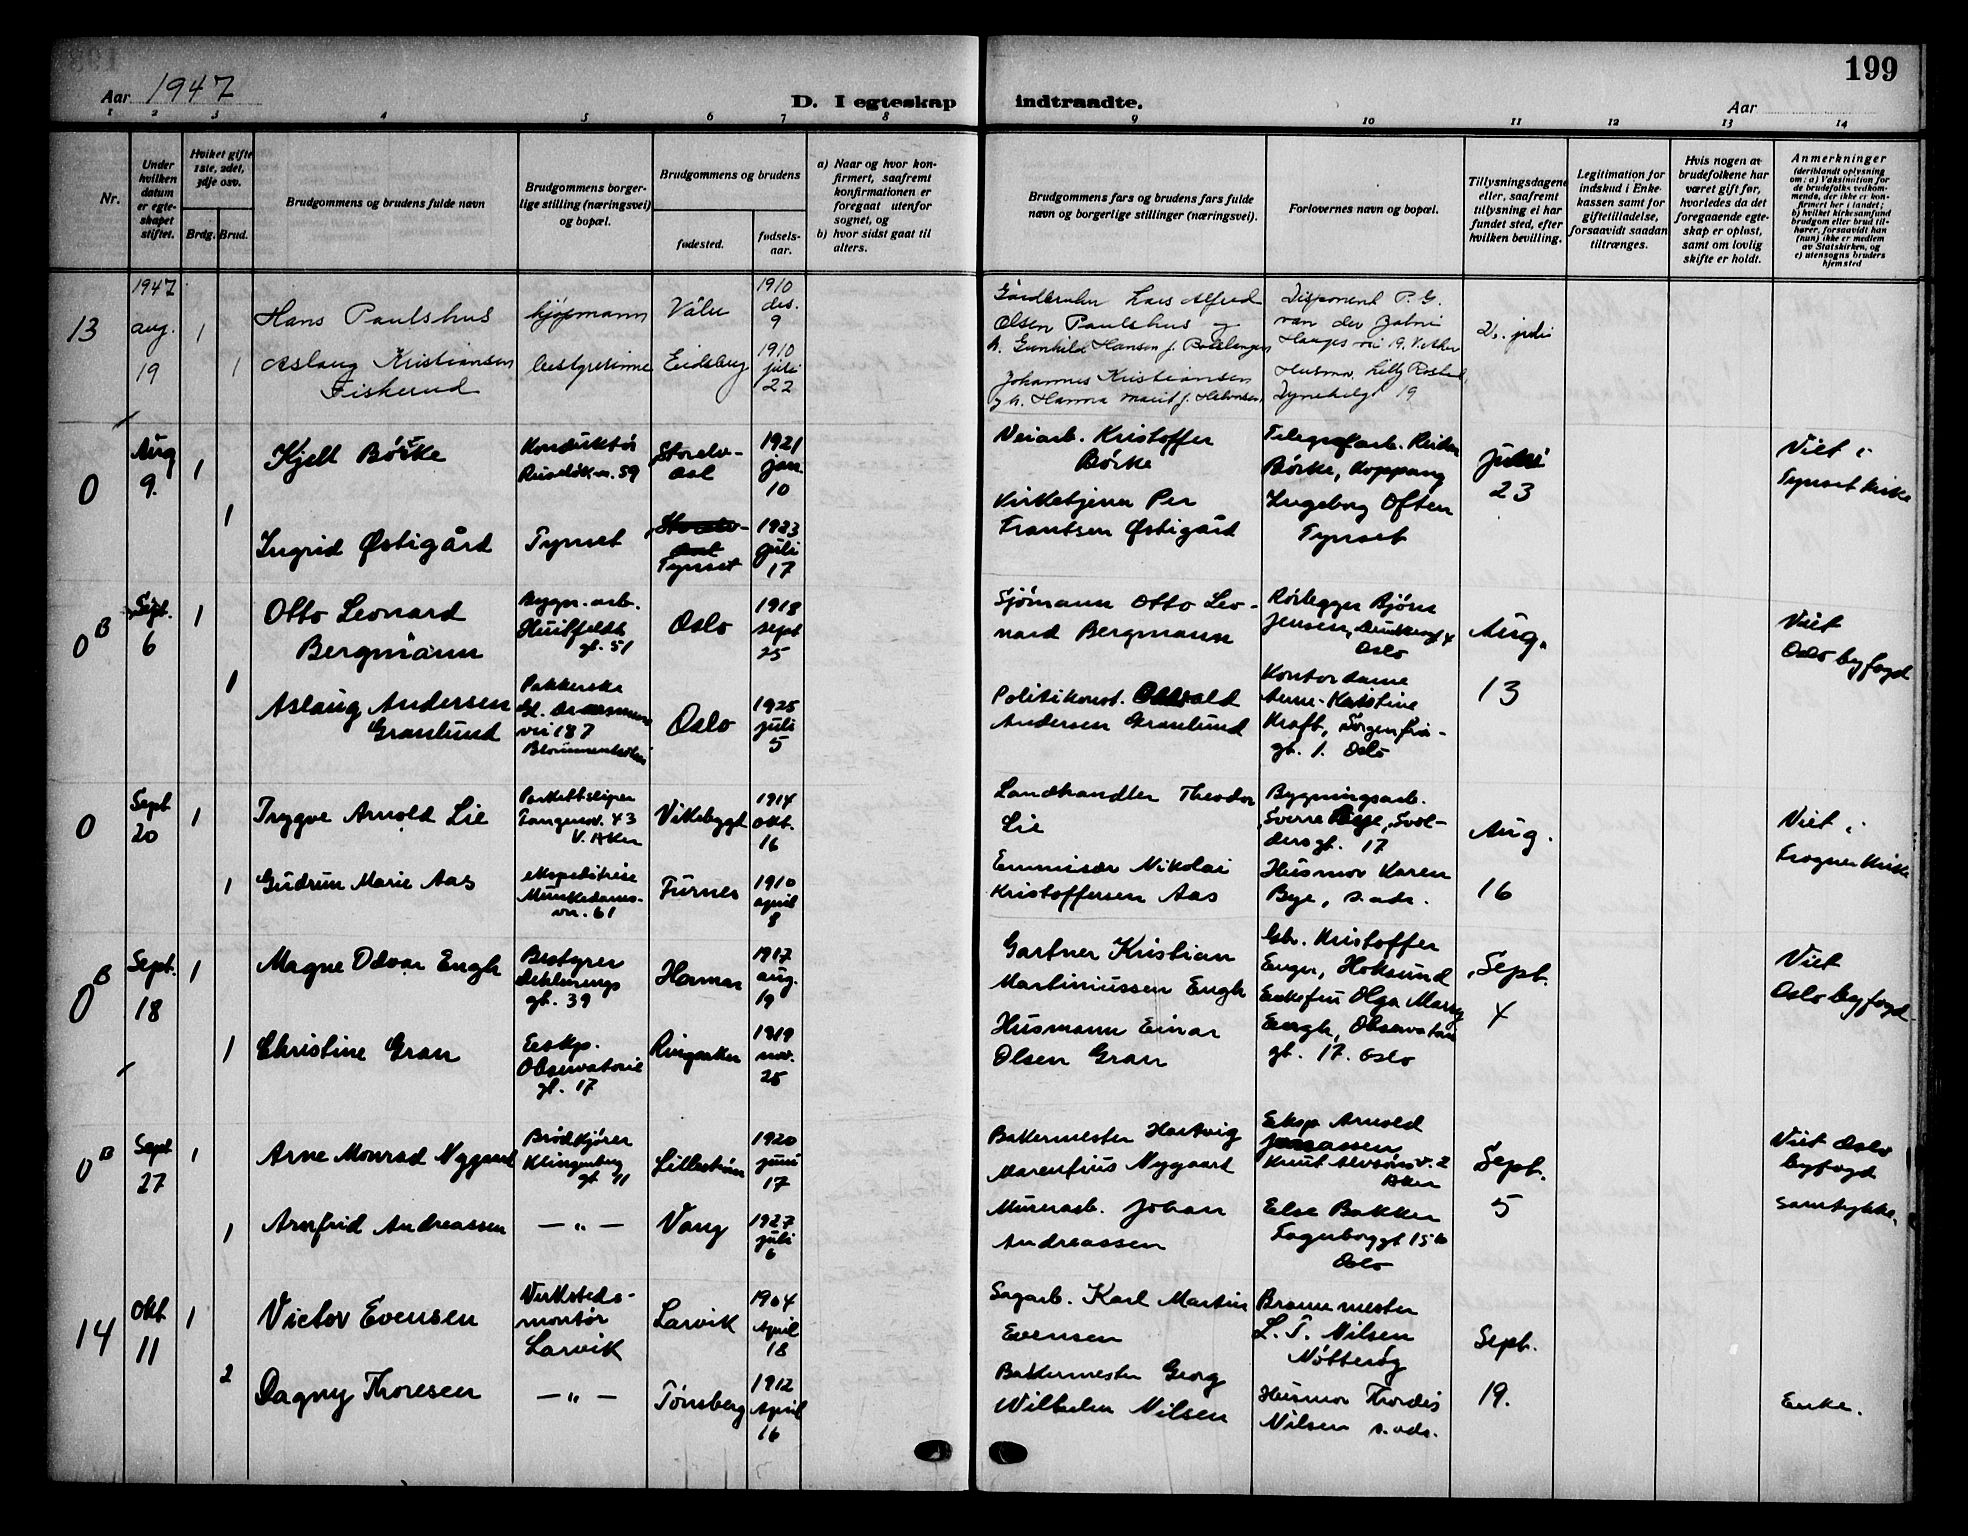 199
Aar 1947
D. I egteskap indtraadte.
Aar
1 2 3 4 5 6 7 8 9 10 11 12 13 14
Nr.
Under
hvilken
datum
er egte-
skapet
stiftet.
Hvilket gifte
1ste, 2det,
3dje osv.
Brdg. Brud.
Brudgommens og brudens fulde navn
Brudgommens borger-
lige stilling (næringsvei)
og bopæl.
Brudgommens og brudens
fødested.
fødsels-
aar.
a) Naar og hvor kon-
firmert, saafremt
konfirmationen er
foregaat utenfor
sognet, og
b) hvor sidst gaat til
alters.
Brudgommens fars og brudens fars fulde
navn og borgerlige stillinger (næringsvei).
Forlovernes navn og bopæl.
Tillysningsdagene
eller, saafremt
tillysning ei har
fundet sted, efter
hvilken bevilling.
Legitimation for
indskud i Enke-
kassen samt for
giftetilladelse,
forsaavidt saadan
tiltrænges.
Hvis nogen av
brudefolkene har
været gift før,
hvorledes da det
foregaaende egte-
skap er opløst,
samt om lovlig
skifte er holdt.
Anmerkninger
(deriblandt oplysning
om: a) Vaksination for
de brudefolks vedkom-
mende, der ikke er kon-
firmert her i landet;
b) hvilket kirksamfund
brudgom eller brud til-
hører, forsaavidt han
(hun) ikke er medlem
av Statskirken, og
c) utensogns bruders
hjemsted
13
1947
aug.
19
1
Hans Paulshus
kjøpmann
Våler
1910
des.
9
Gårdbruker Lars Alfred
Olsen Paulshus og
h. Gunhild Hansen f.
Disponent P. G.
van der
vei 19. V. Aker
juli
1
Aslaug Kristiansen
Fiskerud
bestyrerinne
Eidsberg
1910
juli
22
Johannes Kristiansen
og h. Hanna Marit f. Halvorsen
Husmor Lilly
19
0
Aug
9.
1
Kjell Börke
Konduktör
Ruselökv. 59
Storelv-
dal
1921
jan
10
Veiarb. Kristoffer
Börke
Telegrafarb. Reidar
Börke, Koppang
juli
23
Viet i
Tynset kirke
1
Ingrid Østigård
Tynset
Tynset
1923
juli
17
Kirketjener Per
Frantsen Østigård
Ingeborg Often
Tynset
0 B
Sept.
6
1
Otto Leonard
Bergmann
Bygn. arb.
Huitfeldt
gt. 51
Oslo
1918
sept
25
Sjömann Otto Leo-
nard Bergmann
Rörlegger Björn
Jensen,
Oslo
Aug.
13
Viet
Oslo byfogd
1
Aslaug Andersen
Granlund
Pakkerske
Gl. Drammens
vei 187
Oslo
1925
juli
5
Politikonst.
Andersen Granlund
Kontordame
Anne-Katrine
Kraft, Sorgenfri-
gt. 1. Oslo
0
Sept
20
1
Trygve Arnold Lie
Parkettsliper
43
V. Aker
Vikebygd
1914
okt.
16
Landhandler Theodor
Lie
Bygningsarb.
Sverre Bye, Svol-
dersgt. 17
Aug.
16
Viet i
Frogner Kirke
1
Gudrun Marie Aas
ekspeditrise
Munkedams-
vn. 61
Furnes
1910
april
8
Emmisær Nikolai
Kristoffersen Aas
Husmor Karen
Bye, s. adr.
0 B
Sept.
18
1
Magne Odvar Engh
Bestyrer
gt. 39
Hamar
1917
aug.
19
Gartner Kristian
Martiniussen Engh
Gbr. Kristoffer
Enger, Hoksund
Sept.
4
Viet
Oslo byfogd
1
Christine Gran
Eksp.
Observatorie
gt. 17
Ringsaker
1919
nov.
25
Husmann Einar
Olsen Gran
Enkefru Olga Mary
Engh, Observatorie
gt. 17. Oslo
0 B
Sept
27
1
Arne Monrad Nygaard
Brödkjörer
Klingenberg
gt
Lilleström
1920
juni
17
Bakermester Hartvig
Marenfius Nygaard
Eksp. Arnold
Jonassen
Knut Alvsöns v. 2
Aker
Sept.
5
Viet Oslo
byfogd
Samtykke.
1
Arnfrid Andreassen
— „ —
Vang
1927
juli
6
Murerarb. Johan
Andreassen
Else Bakker
Fagerborggt 15 b
Oslo
14
Okt
11
1
Victor Evensen
Verksteds-
montör
Larvik
Larvik
1904
April
18
Sagarb. Karl Martin
Evensen
Brannmester
L. T. Nilsen
Nötteröy
Sept.
19.
2
Dagny Thoresen
— „ —
Tønsberg
1912
April
16
Bakermester Georg
Wilhelm Nilsen
Husmor Thordis
Nilsen s. adr.
Enke.